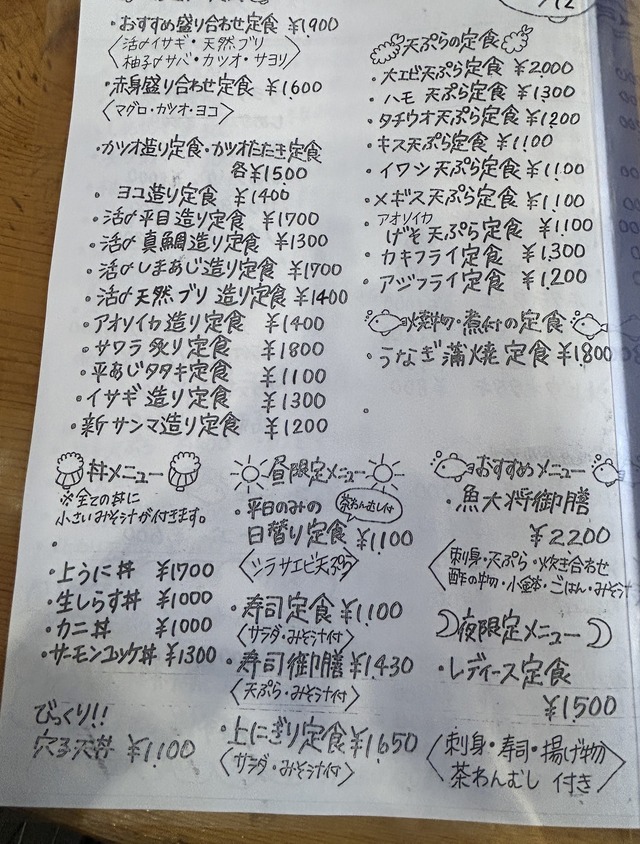 ・おすすめ盛り合わせ定食 ¥1,900
〈活〆イサギ・天然ブリ
柚子〆サバ・カツオ・サヨリ〉
・赤身盛り合わせ定食 ¥1,600
〈マグロ・カツオ・ヨコ〉
・カツオ造り定食・カツオたたき定食
各¥1500
・ヨコ造り定食 ¥1400
・活〆平目造り定食 ¥1700
・活〆真鯛造り定食 ¥1300
・活〆しまあじ造り定食 ¥1700
・活〆天然ブリ造り定食 ¥1400
・アオリイカ造り定食 ¥1400
・サワラ炙り定食 ¥1800
・平あじタタキ定食 ¥1100
・イサギ造り定食 ¥1300
・新サンマ造り定食 ¥1200
天ぷらの定食
・大エビ天ぷら定食 ¥2,000
・ハモ天ぷら定食 ¥1,300
・タチウオ天ぷら定食 ¥1200
・キス天ぷら定食 ¥1100
・イワシ天ぷら定食 ¥1,100
・メギス天ぷら定食 ¥1,100
・アオリイカ
げそ天ぷら定食 ¥1,100
・カキフライ定食 ¥1,300
・アジフライ定食 ¥1,200
焼物・煮付の定食
・うなぎ蒲焼定食 ¥1800
丼メニュー
※全ての丼に
小さいみそ汁が付きます。
・上うに丼 ¥1700
・生しらす丼 ¥1000
・カニ丼 ¥1000
・サーモンユッケ丼 ¥1300
びっくり!!
穴子天丼 ¥1,100
昼限定メニュー
・平日のみの
茶わんむし付
日替り定食 ¥1,100
〈シラサエビ天ぷら〉
・寿司定食 ¥1,100
〈サラダ・みそ汁付〉
・寿司御膳 ¥1,430
〈天ぷら・みそ汁付〉
・上にぎり定食 ¥1,650
〈サラダ・みそ汁付〉
おすすめメニュー
・魚大将御膳
¥2200
〈刺身・天ぷら・炊き合わせ
酢の物・小鉢・ごはん・みそ汁
夜限定メニュー
・レディース定食
¥1,500
〈刺身・寿司・揚げ物
茶わんむし 付き〉